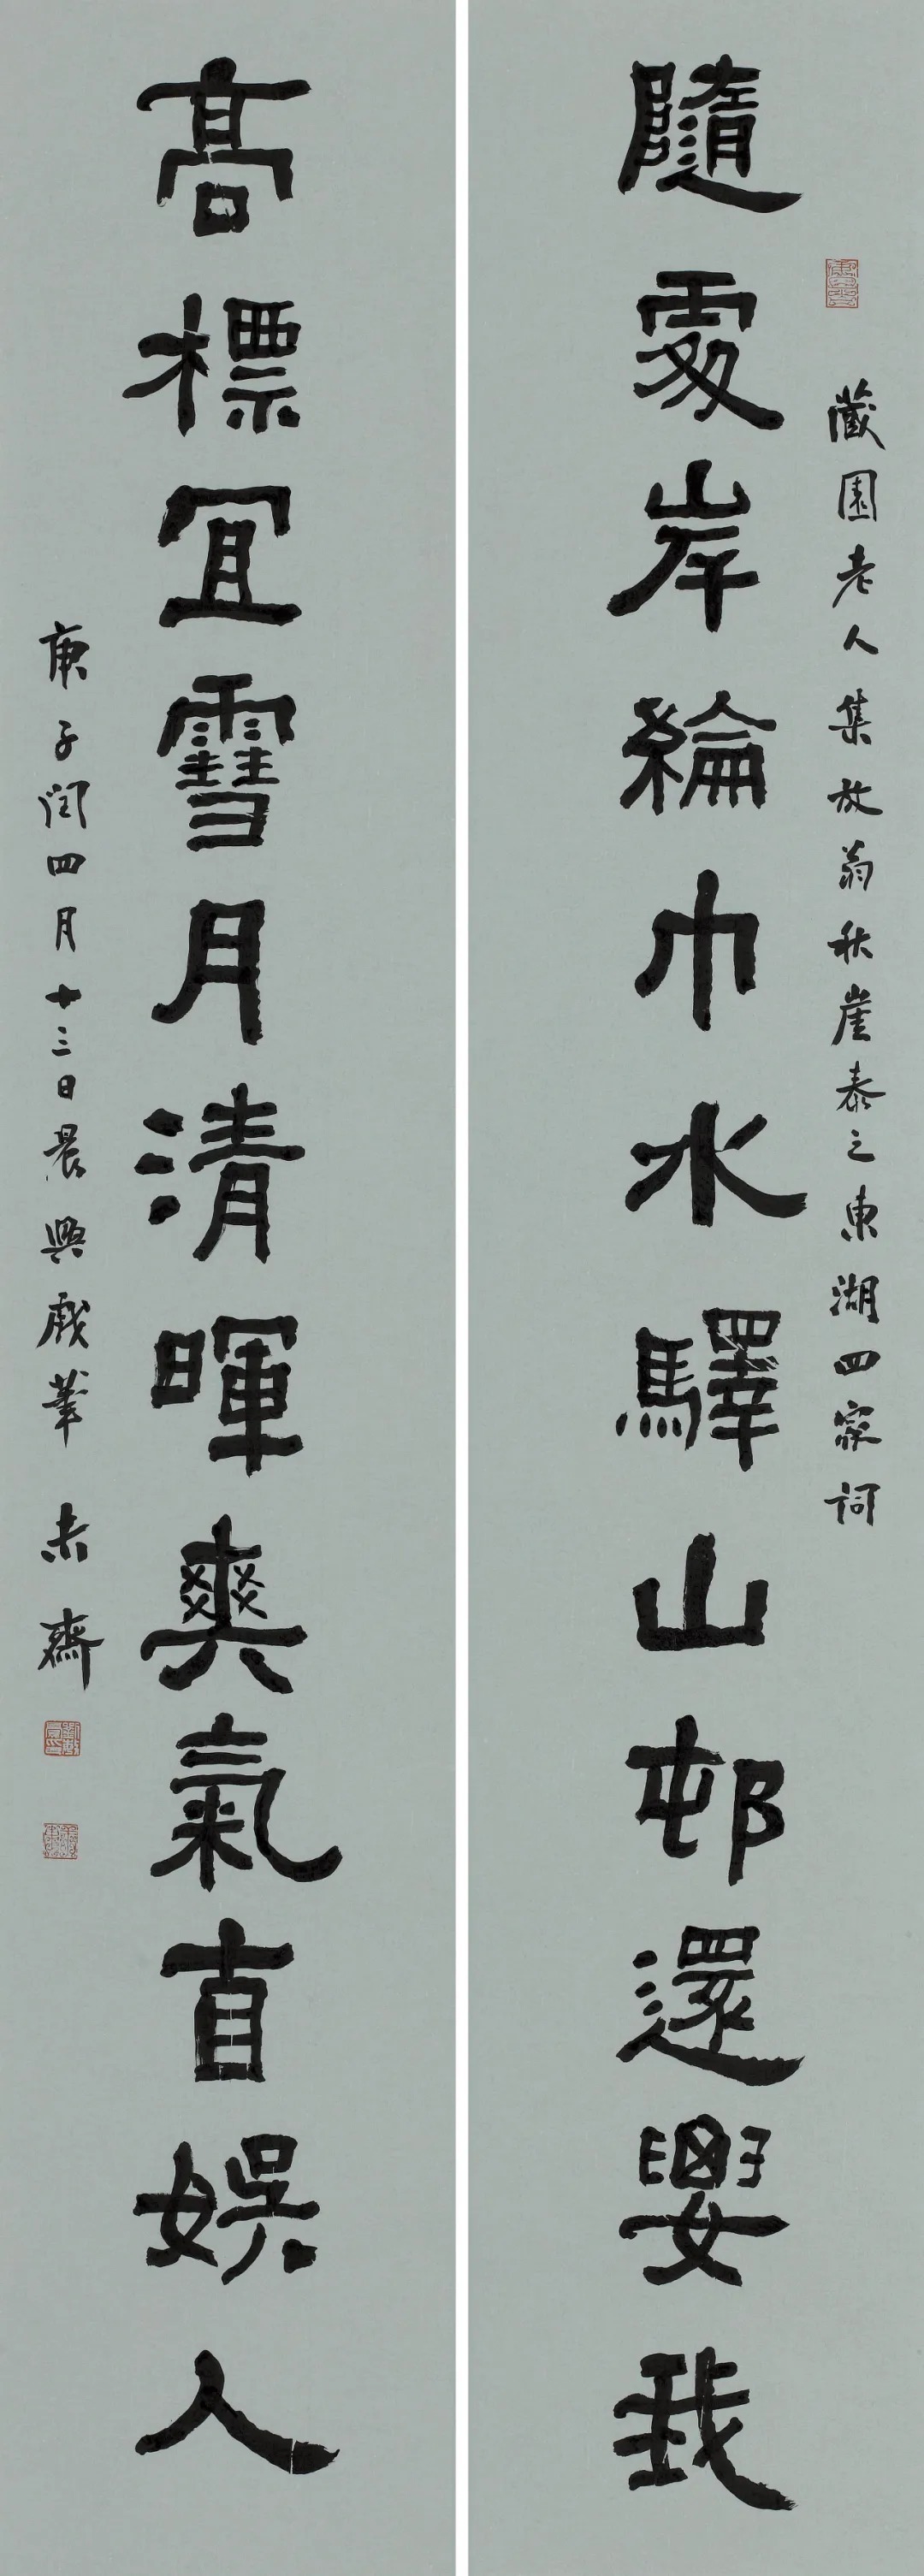 藏園老人集放翁秋崖泰之東湖四家詞
隨處岸綸巾水驛山邨還要我
高標宜雪月清暉爽氣直娛人
庚子閏四月十三日晨興戲筆 齋